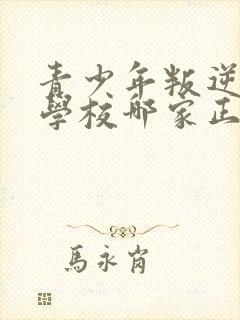 青少年叛逆
學校哪家正
馬永肖